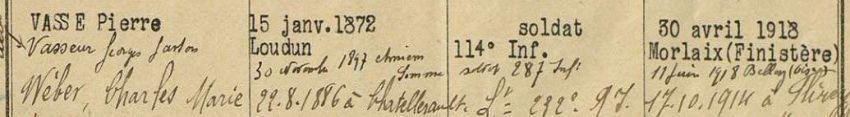 VASSE Pierre 15 janv.1872 soldat 30 avril 1918
Loudun 114° Inf. Morlaix(Finistère)
Vasseur Georges Gaston 30 Novembre 1897 Amiens Somme soldat 287 Inf: 11 juin 1918 Belloy (Oise)
Wéber, Charles Marie 22.8.1886 à Chatellerault. Lt= 232e. R.I. 17.10.1914 à